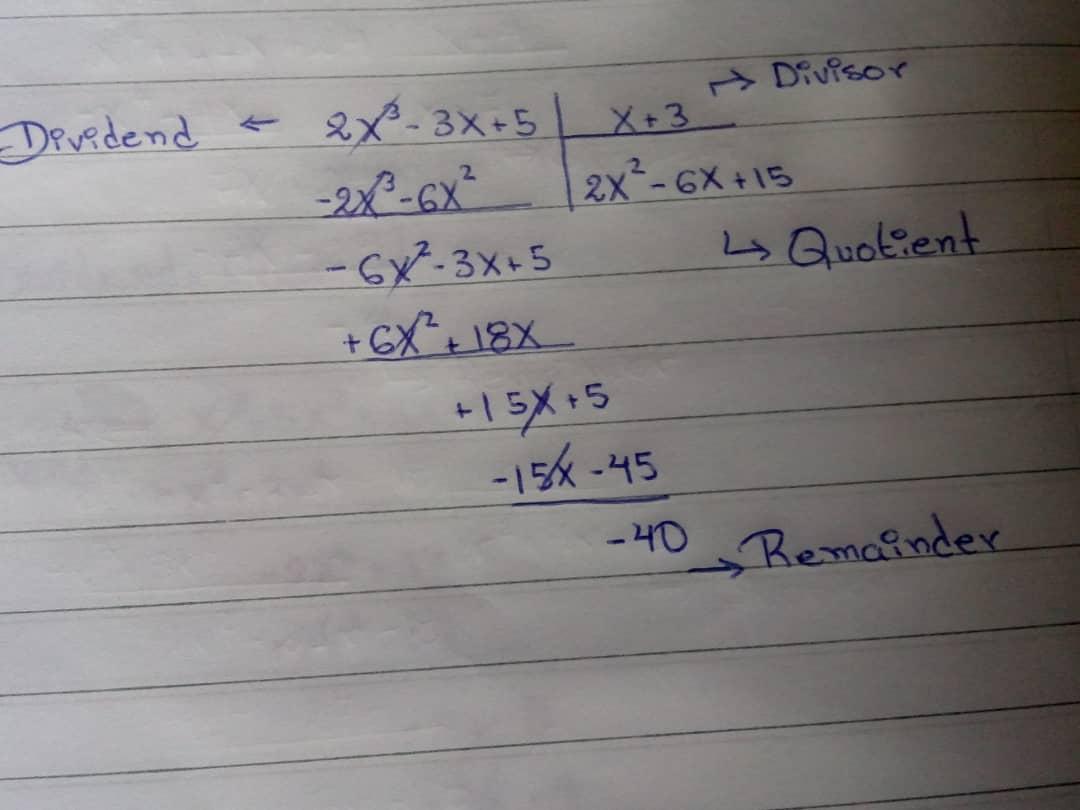 → Divisor
Dividend ← 2x³-3x+5 | x+3
-2x³-6x² | 2x²-6x+15
-6x²-3x+5 ↳ Quotient
+6x²+18x
+15x+5
-15x-45
-40 → Remainder